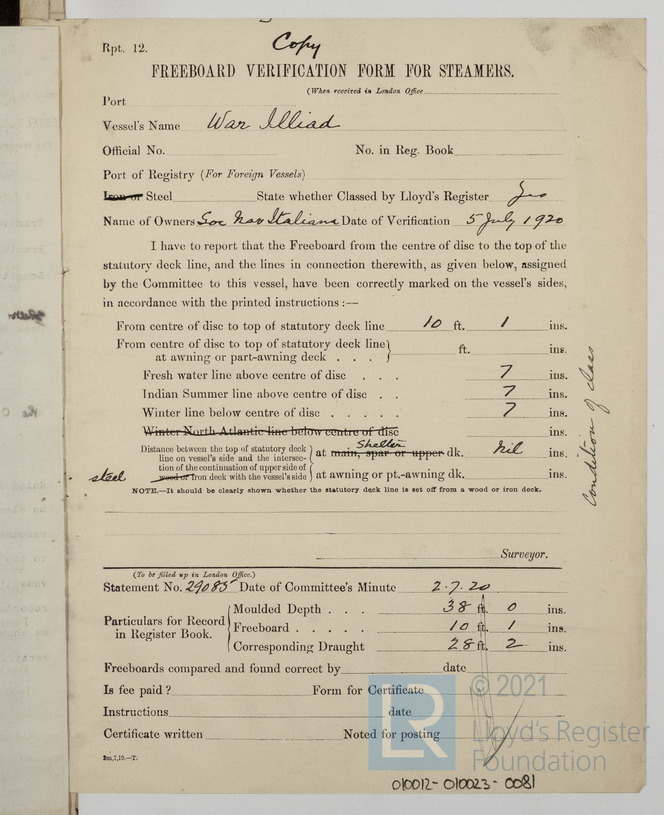 Copy
Rpt. 12.
FREEBOARD VERIFICATION FORM FOR STEAMERS.
(When received in London Office
Port
Vessel's Name War Illiad
Official No. No. in Reg. Book
Port of Registry (For Foreign Vessels)
Iron or Steel State whether Classed by Lloyd's Register Yes
Name of Owners Soc Nav Italiana Date of Verification 5 July 1920
I have to report that the Freeboard from the centre of disc to the top of the
statutory deck line, and the lines in connection therewith, as given below, assigned
by the Committee to this vessel, have been correctly marked on the vessel's sides,
in accordance with the printed instructions :—
From centre of disc to top of statutory deck line 10 ft. 1 ins.
From centre of disc to top of statutory deck line
at awning or part-awning deck . . . ft. ins.
Fresh water line above centre of disc . . . 7 ins.
Indian Summer line above centre of disc . . 7 ins.
Winter line below centre of disc . . . . . 7 ins.
Winter North Atlantic line below centre of disc ins.
Distance between the top of statutory deck
line on vessel's side and the intersec-
tion of the continuation of upper side of
steel wood or iron deck with the vessel's side
Shelter
at main, spar or upper dk. Nil ins.
at awning or pt.-awning dk. ins.
Condition of class
NOTE.—It should be clearly shown whether the statutory deck line is set off from a wood or iron deck.
Surveyor.
(To be filled up in London Office.)
Statement No. 29085 Date of Committee's Minute 2.7.20
Particulars for Record
in Register Book.
Moulded Depth . . . 38 ft. 0 ins.
Freeboard . . . . . 10 ft. 1 ins.
Corresponding Draught 28 ft. 2 ins.
Freeboards compared and found correct by date
Is fee paid ? Form for Certificate
Instructions date
Certificate written Noted for posting
2m,7,19.—T.
© 2021
LR
Lloyd's Register
Foundation
010012-010023-0081